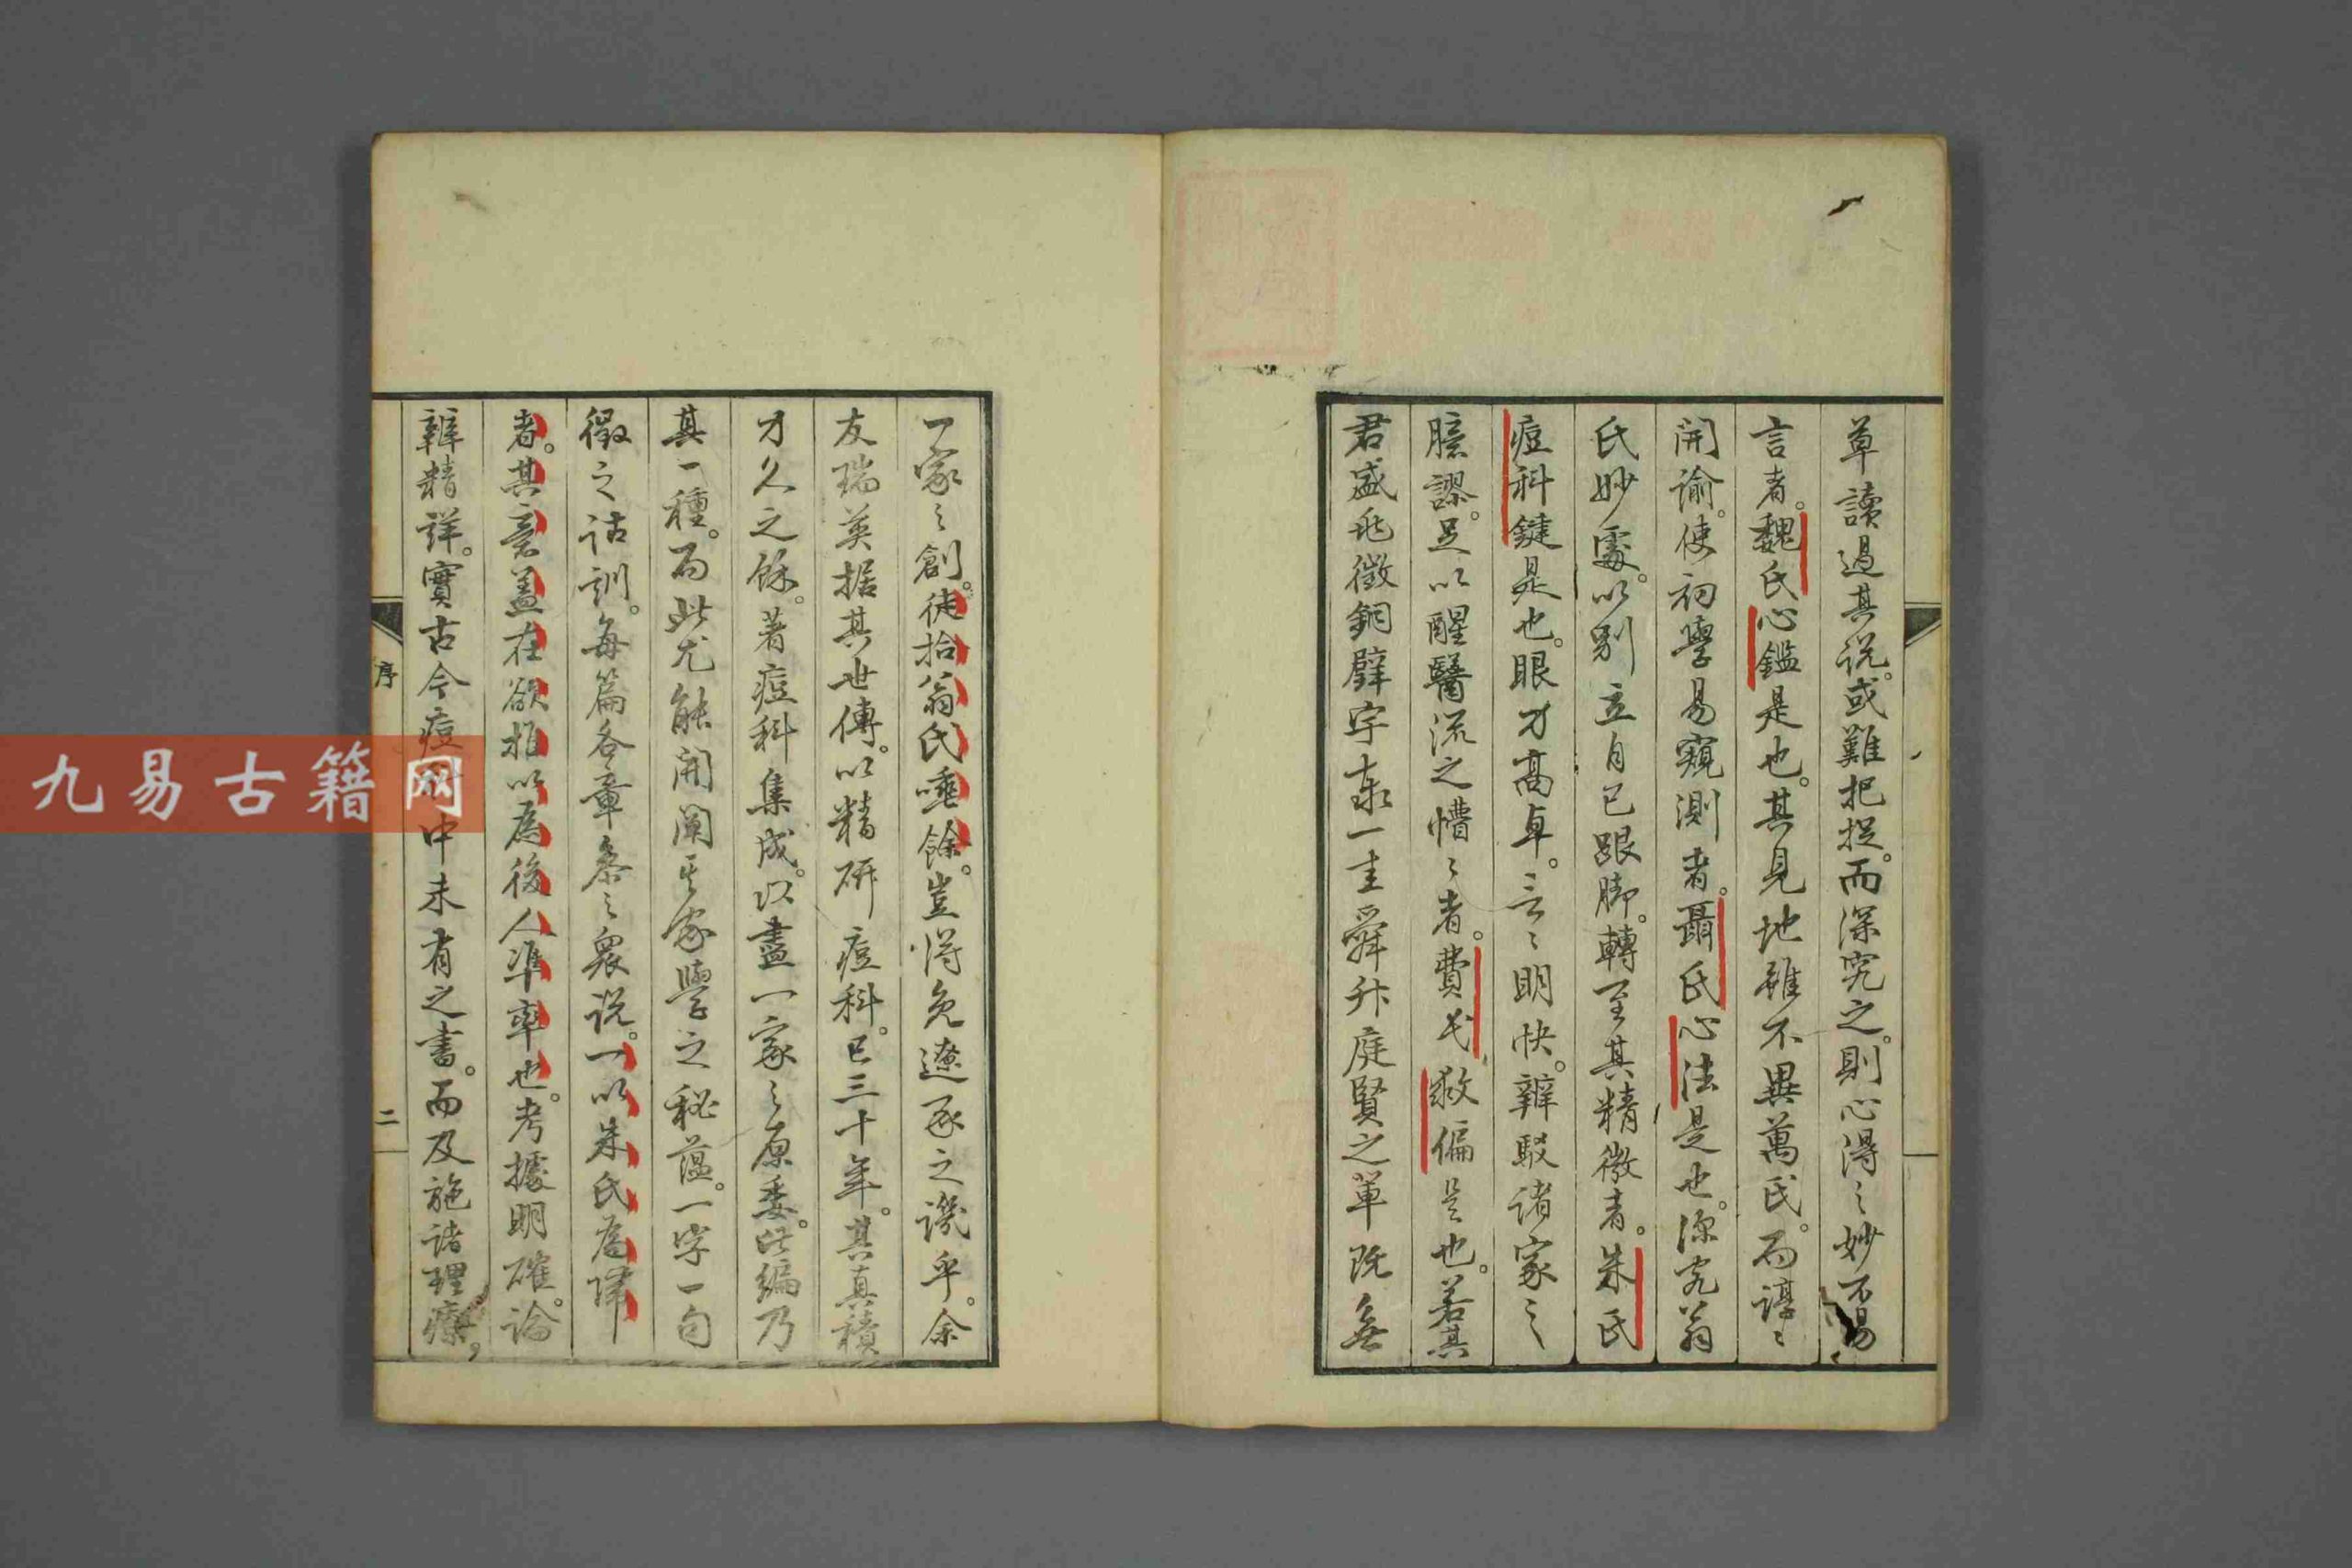 草讀過其説。或難把捉。而深究之。則心得之妙不易
言者。魏氏心鑑是也。其見地雖不異萬氏。而諄々
開諭。使初學易窺測者。聶氏心法是也。深究翁
氏妙處。以別立自己跟脚。轉至其精微者。朱氏
痘科鍵是也。眼才高卓。言々明快。辨駁諸家之
臆謬。足以醒醫流之懵々者。費氏救偏是也。若其
君盛兆徵銅壁宇泰一圭舜廷賢之輩既無
一家之創。徒拾翁氏唾餘。豈得免遼豕之譏乎。余
友瑞英据其世傳。以精研痘科。已三十年。其真積
力久之餘。著痘科集成。以盡一家之原委。此編乃
其一種。而此尤能開闡其家學之秘蘊。一字一句
徵之詁訓。每篇各章參之衆説。一以朱氏為
者。其意盖在欲推以為後人準率也。考據明確。論
辨精詳。實古今痘科中未有之書。而及施諸理療。
序
二
九易古籍网